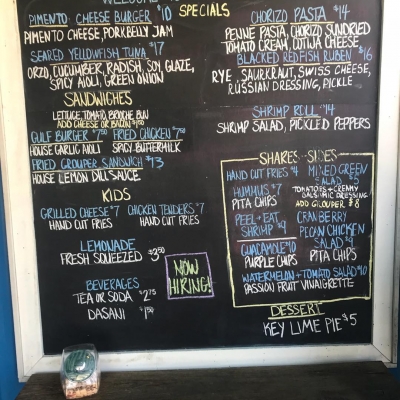 WELCOME
PIMENTO CHEESE BURGER $10
PIMENTO CHEESE, PORK BELLY JAM
SEARED YELLOWFISH TUNA $17
ORZO, CUCUMBER, RADISH, SOY, GLAZE,
SPICY AIOLI, GREEN ONION
SANDWICHES
LETTUCE, TOMATO, BRIOCHE BUN
ADD CHEESE OR BACON
GULF BURGER $7.50 FRIED CHICKEN $7.50
HOUSE GARLIC AIOLI SPICY BUTTERMILK
FRIED GROUPER SANDWICH $13
HOUSE LEMON DILL SAUCE
KIDS
GRILLED CHEESE $7 CHICKEN TENDERS $7
HAND CUT FRIES HAND CUT FRIES
LEMONADE
FRESH SQUEEZED $3.50
BEVERAGES
TEA OR SODA $2.75
DASANI $1.50
NOW
HIRING!
SPECIALS
CHORIZO PASTA $14
PENNE PASTA, CHORIZO, SUNDRIED
TOMATO CREAM, COTIJA CHEESE
BLACKED REDFISH RUBEN $16
RYE, SAURKRAUT, SWISS CHEESE,
RUSSIAN DRESSING, PICKLE
SHRIMP ROLL $14
SHRIMP SALAD, PICKLED PEPPERS
SHARES-SIDES
HAND CUT FRIES $4
HUMMUS $7
PITA CHIPS
PEEL+EAT
SHRIMP
GUACAMOLE $10
PURPLE CHIPS
MIXED GREEN
SALAD $5
TOMATOES + CREAMY
BALSAMIC DRESSING
ADD GROUPER $8
CRANBERRY
PECAN CHICKEN
SALAD $9
PITA CHIPS
WATERMELON + TOMATO SALAD $10
PASSION FRUIT VINAIGRETTE
DESSERT
KEY LIME PIE $5